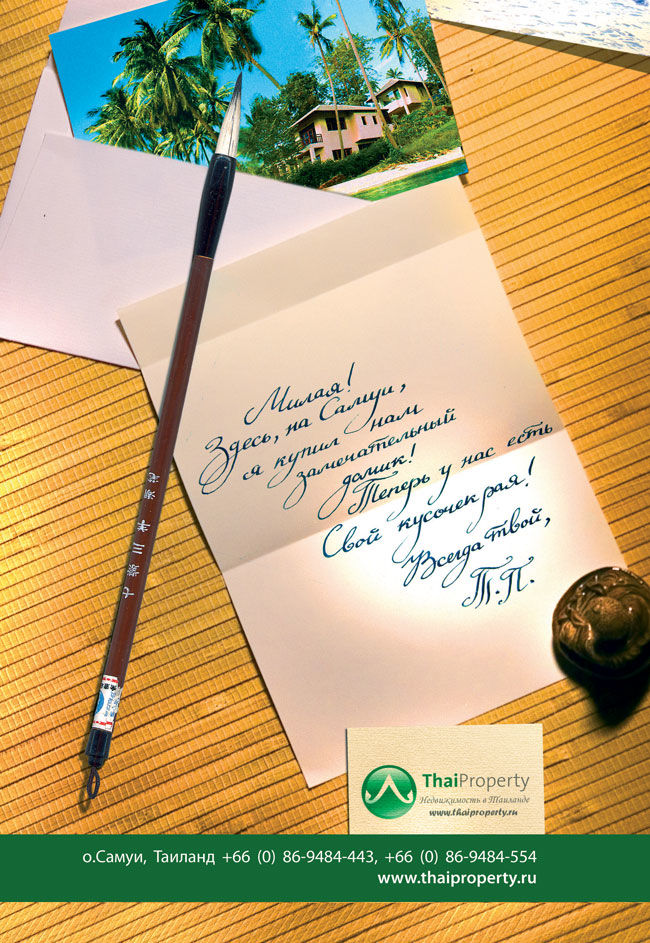 Милая!
Здесь, на Самуи,
я купил нам
замечательный
домик!
Теперь у нас есть
Свой кусочек рая!
Всегда твой,
Т.П.
ThaiProperty
Недвижимость в Таиланде
www.thaiproperty.ru
о.Самуи, Таиланд +66 (0) 86-9484-443, +66 (0) 86-9484-554
www.thaiproperty.ru